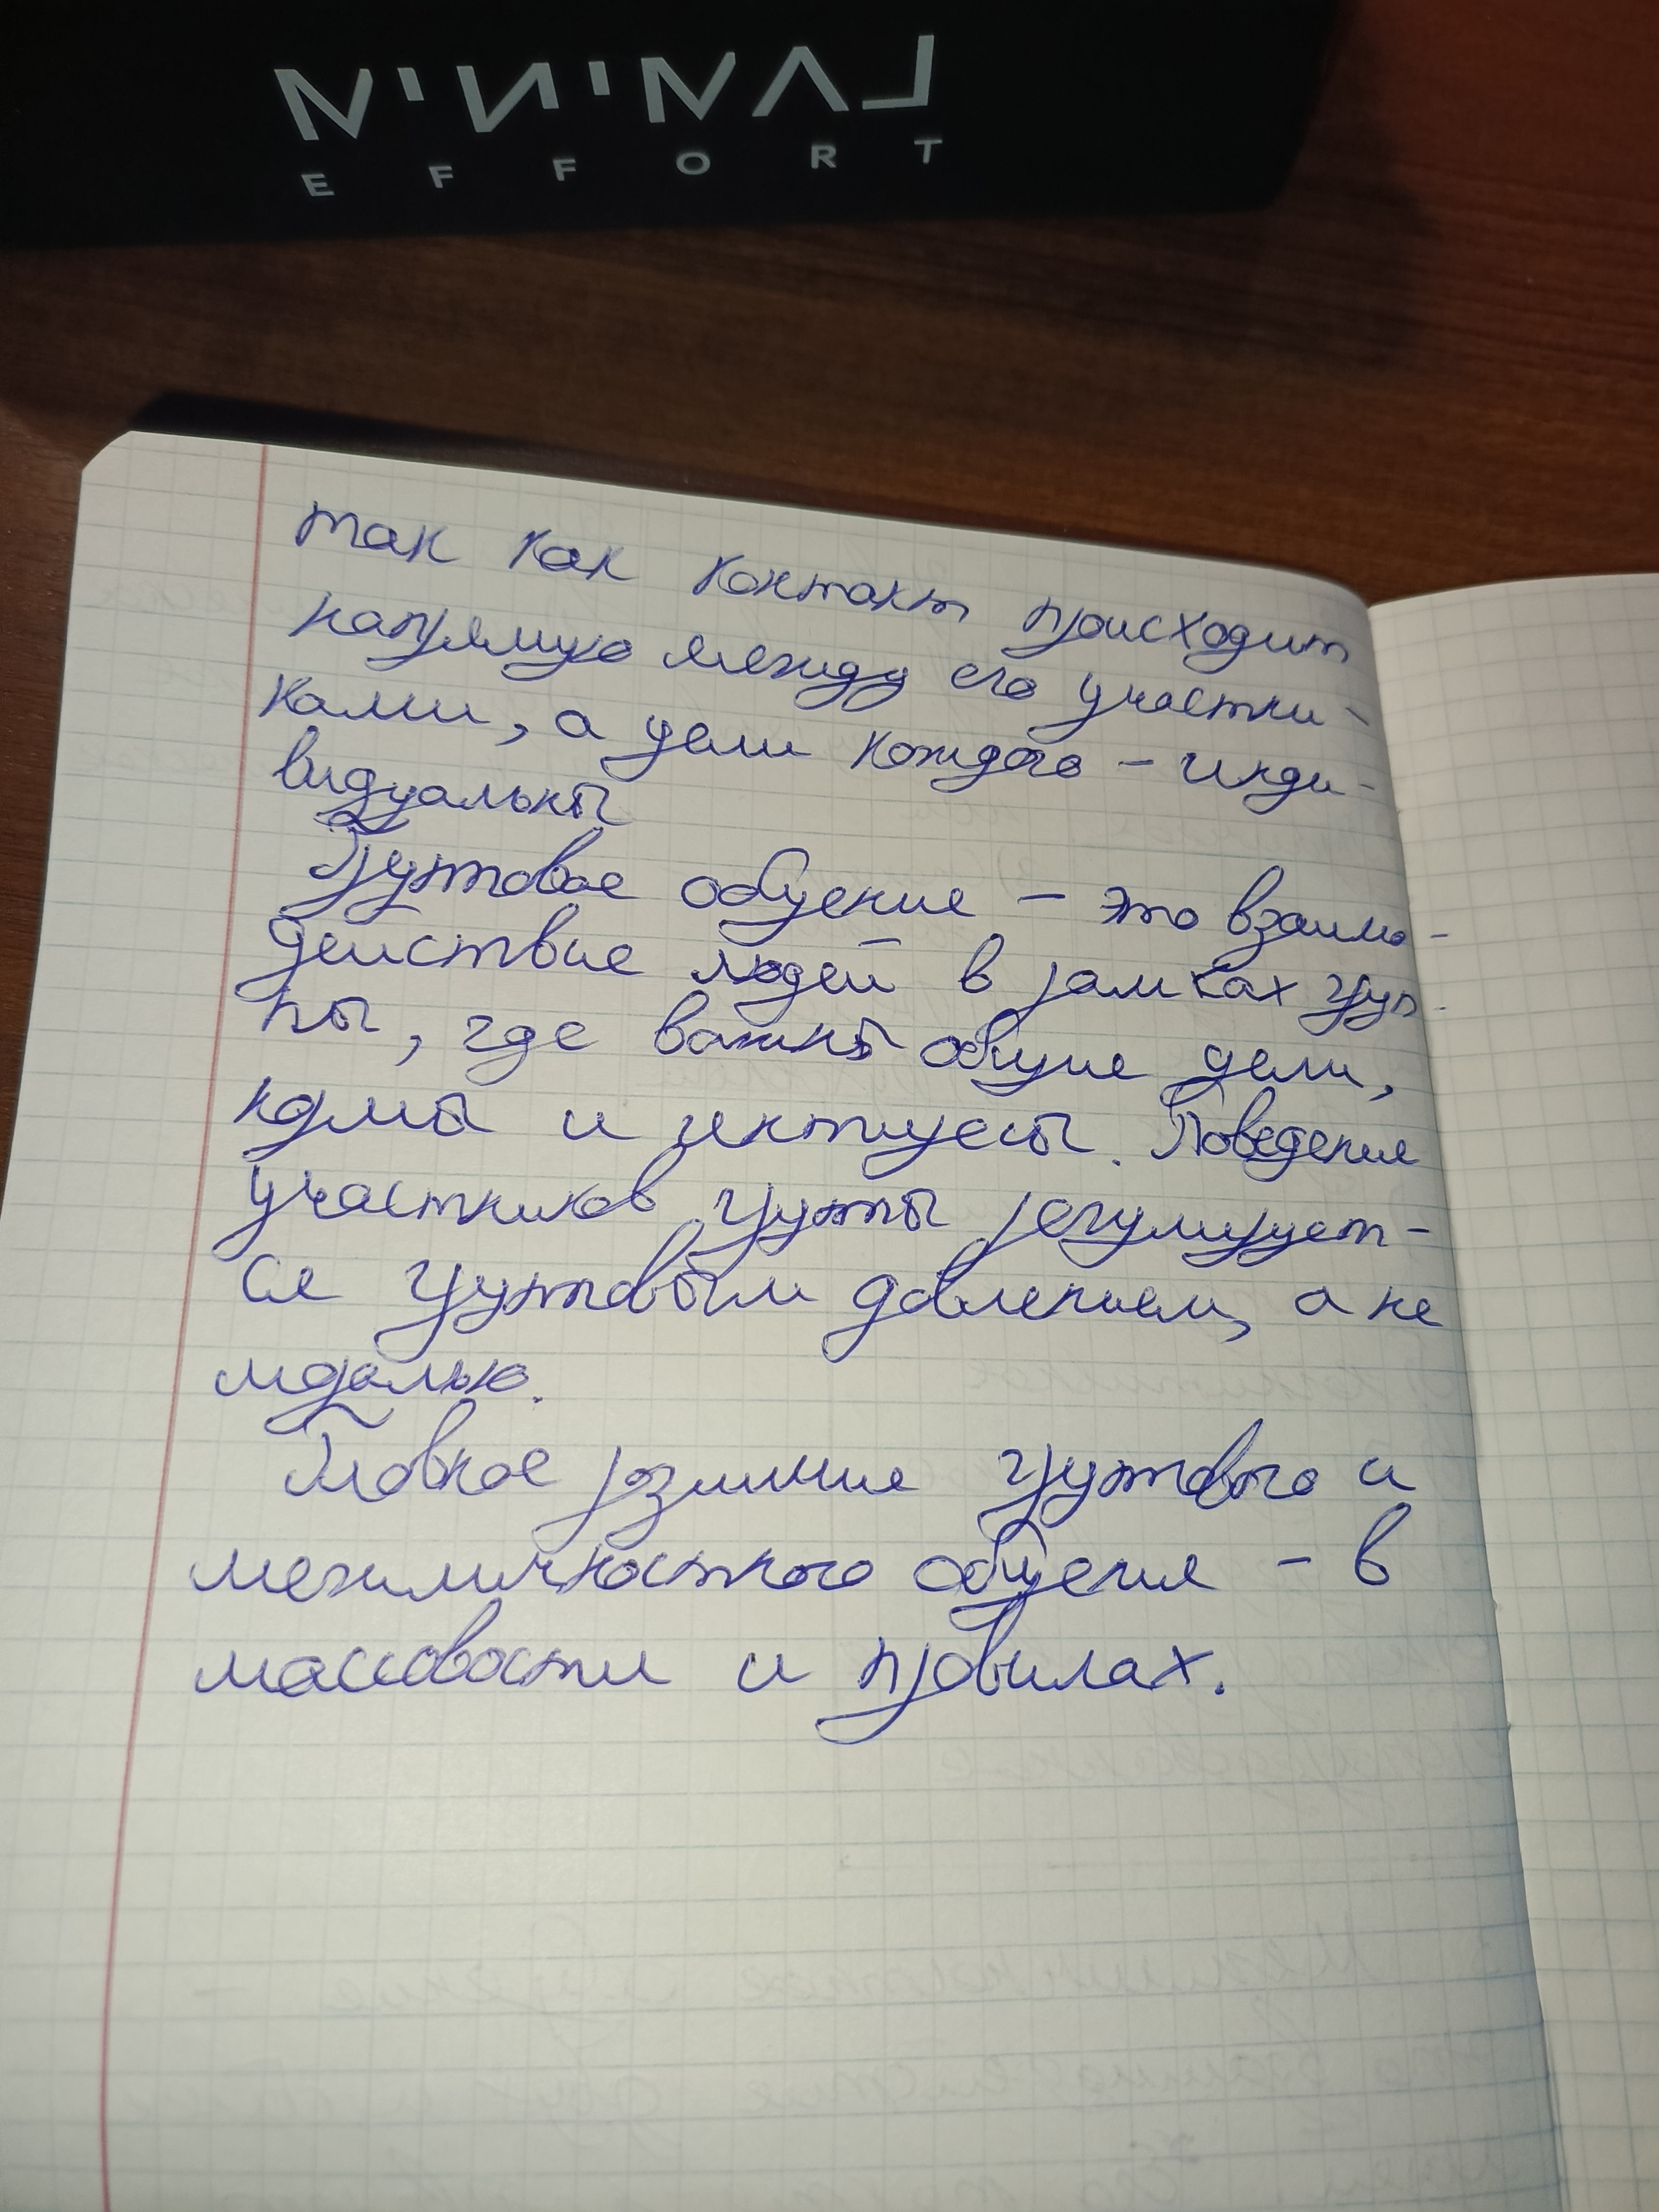 MINIMAL
EFFORT
так как контакт происходит
напрямую между его участни-
ками, а цели каждого – инди-
видуальны
Групповое общение – это взаимо-
действие людей в рамках груп-
пы, где важны общие цели,
нормы и интересы. Поведение
участников группы регулирует-
ся групповым давлением, а не
моралью.
Главное различие группового и
межличностного общения – в
массовости и правилах.